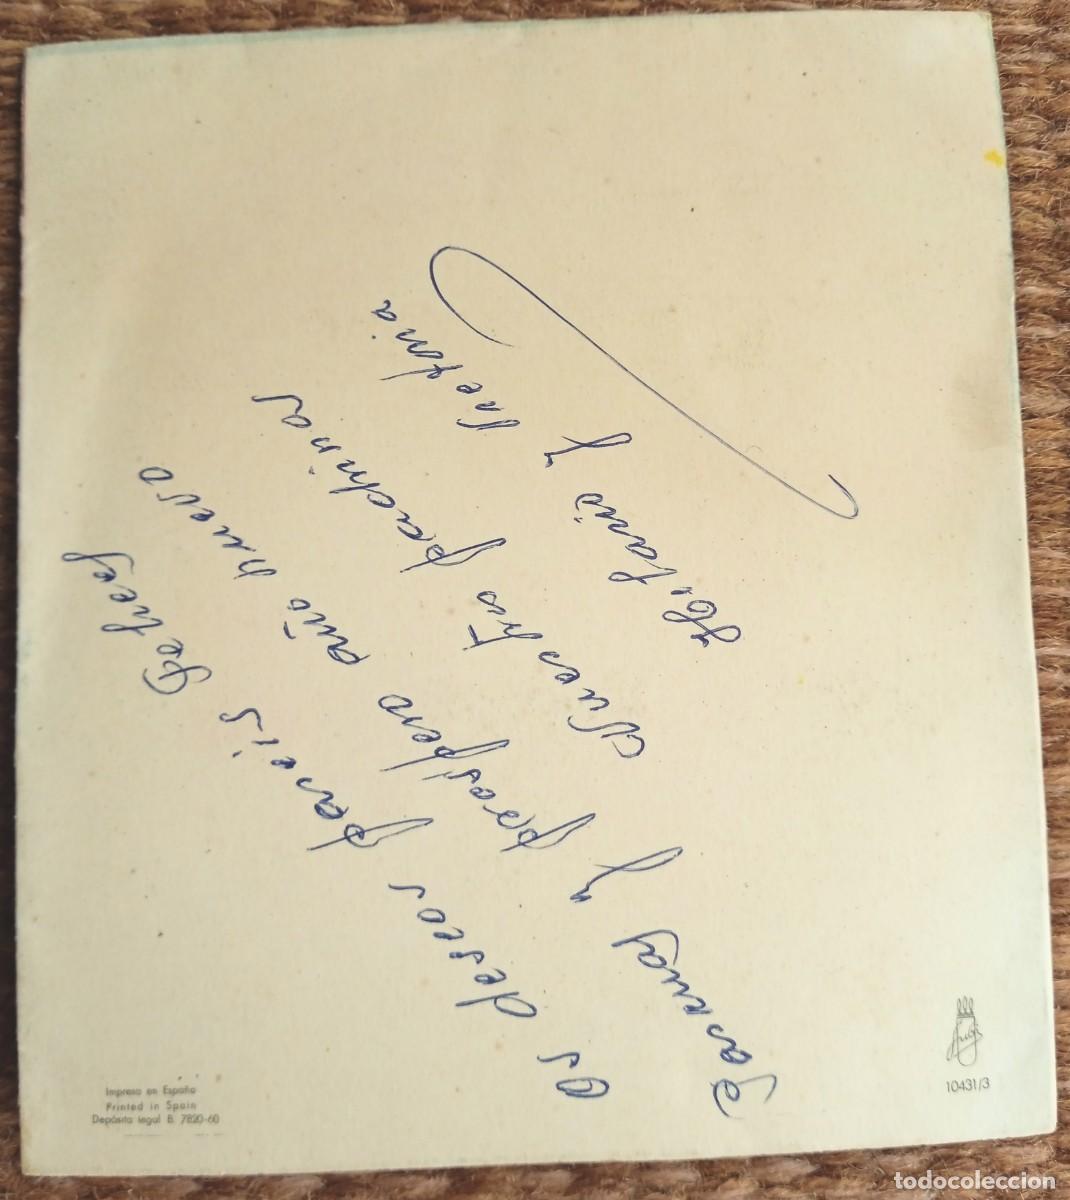 os deseos paseis Felices
Pascuas y prospero año nuevo
Nuestros pachinas
Hilario y
Impreso en España
Printed in Spain
Depósito legal B. 7820-60
10431/3
todocoleccion